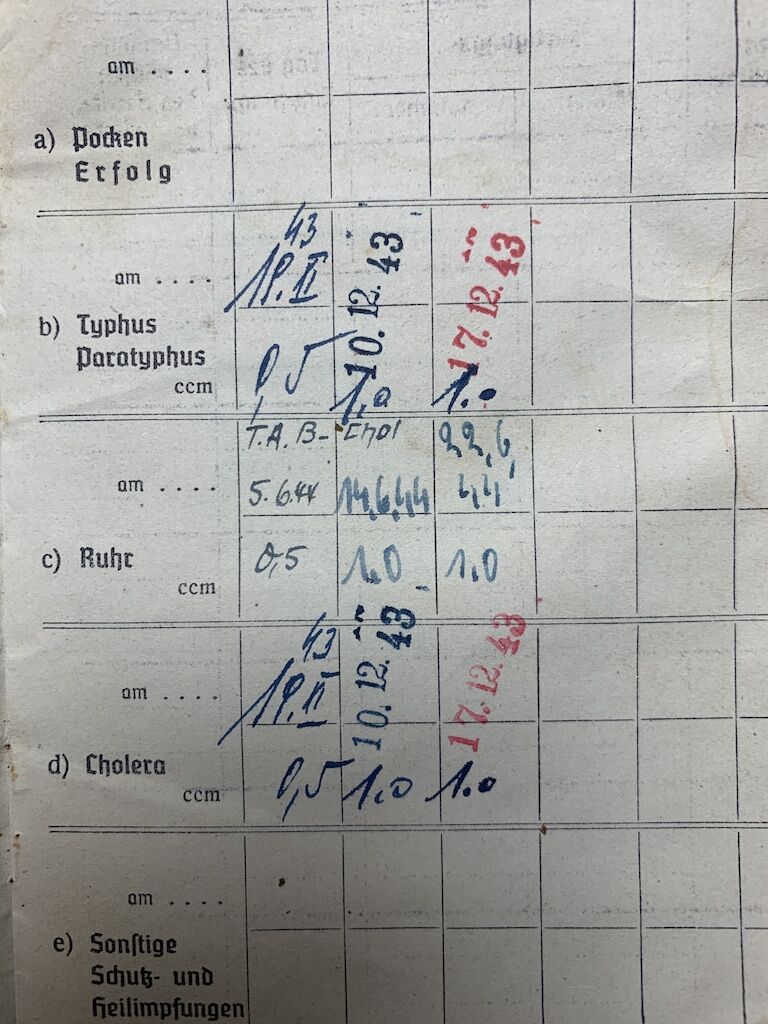 am ....
a) Pocken
Erfolg
43
am .... 19.II 10.12.43 17.12.43
b) Typhus
Paratyphus
ccm 0,5 1,0 1.0
T.A.B- Chol 22,6,
am .... 5.6.44 14,6,44 44
c) Ruhr 0,5 1.0 1.0
ccm
43
am .... 19.II 10.12.43 17.12.43
d) Cholera
ccm 0,5 1.0 1.0
am ....
e) Sonſtige
Schutz- und
Heilimpfungen